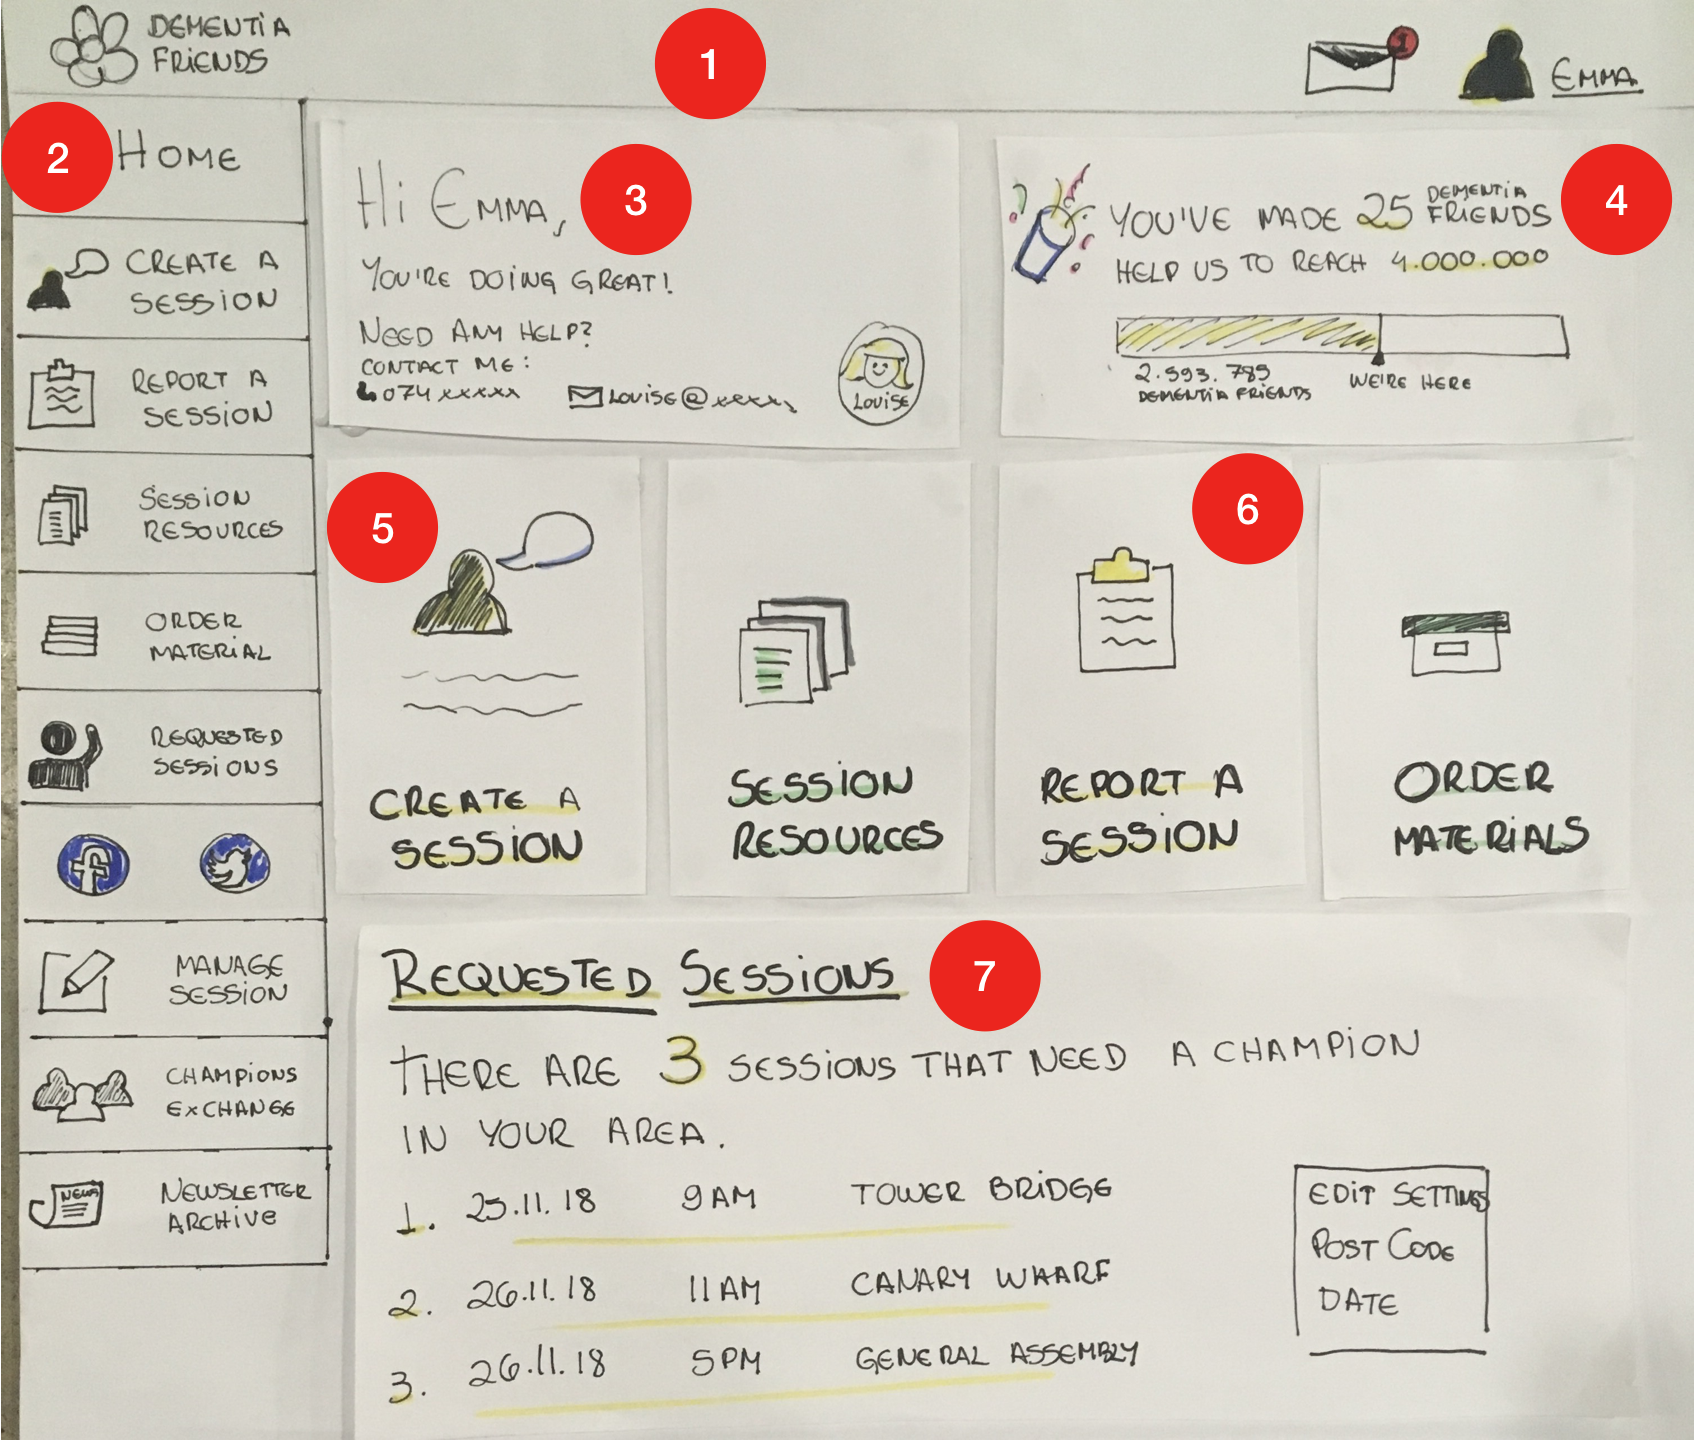 DEMENTIA
FRIENDS
1
1
EMMA
2
HOME
CREATE A
SESSION
REPORT A
SESSION
SESSION
RESOURCES
ORDER
MATERIAL
REQUESTED
SESSIONS
f
MANAGE
SESSION
CHAMPIONS
EXCHANGE
NEWS
NEWSLETTER
ARCHIVE
Hi EMMA,
3
YOU'RE DOING GREAT!
NEED ANY HELP?
CONTACT ME:
074xxxxx LOUISE@xxxx,
LOUISE
4
YOU'VE MADE 25 DEMENTIA FRIENDS
HELP US TO REACH 4.000.000
2.593.785
DEMENTIA FRIENDS
WE'RE HERE
5
CREATE A
SESSION
SESSION
RESOURCES
6
REPORT A
SESSION
ORDER
MATERIALS
REQUESTED SESSIONS
7
THERE ARE 3 SESSIONS THAT NEED A CHAMPION
IN YOUR AREA.
1. 25.11.18 9AM TOWER BRIDGE
2. 26.11.18 11AM CANARY WHARF
3. 26.11.18 5PM GENERAL ASSEMBLY
EDIT SETTINGS
POST CODE
DATE